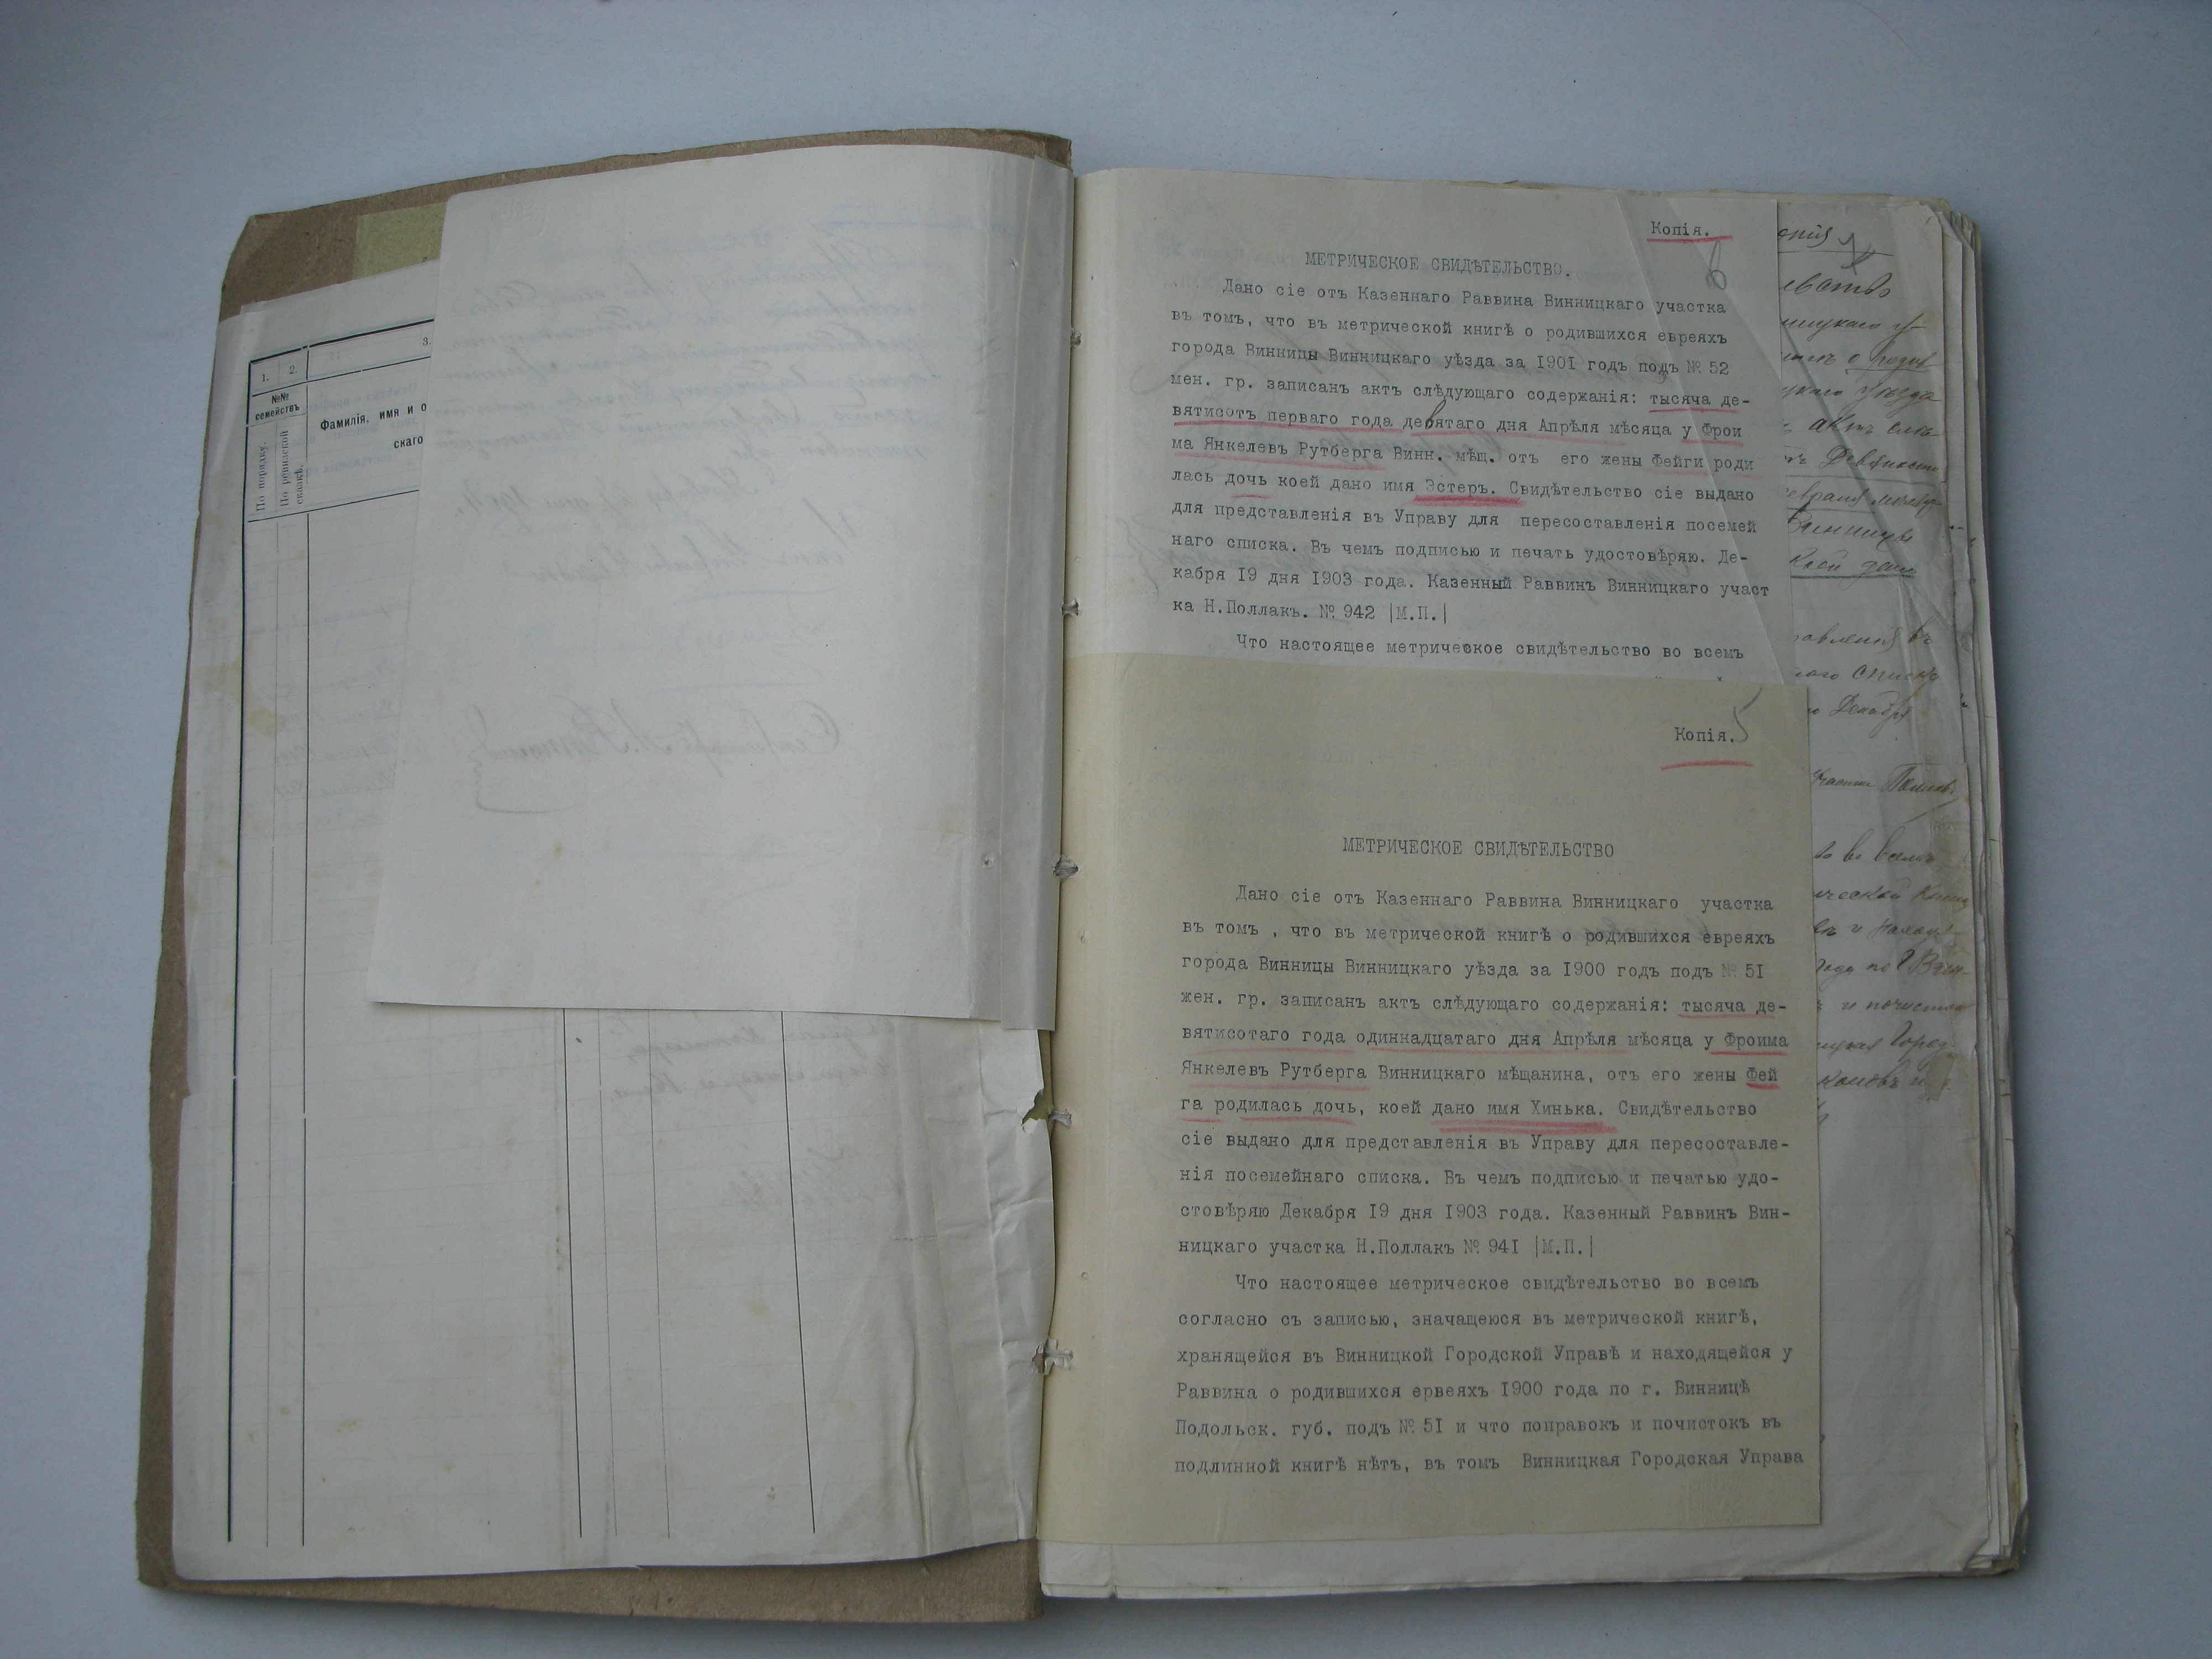 1.
2.
3.
№№
семействъ
По порядку.
По ревизской
сказкѣ.
Фамилія, имя и о
скаго
Копія.
6
МЕТРИЧЕСКОЕ СВИДѢТЕЛЬСТВО.
Дано сіе отъ Казеннаго Раввина Винницкаго участка
въ томъ, что въ метрической книгѣ о родившихся евреяхъ
города Винницы Винницкаго уѣзда за 1901 годъ подъ № 52
мен. гр. записанъ актъ слѣдующаго содержанія: тысяча де-
вятисотъ перваго года девятаго дня Апрѣля мѣсяца у Фрои
ма Янкелевъ Рутберга Винн. мѣщ. отъ его жены Фейги роди
лась дочь коей дано имя Эстеръ. Свидѣтельство сіе выдано
для представленія въ Управу для пересоставленія посемей
наго списка. Въ чемъ подписью и печать удостовѣряю. Де-
кабря 19 дня 1903 года. Казенный Раввинъ Винницкаго участ
ка Н.Поллакъ. № 942 |М.П.|
Что настоящее метрическое свидѣтельство во всемъ
Копія.
5
МЕТРИЧЕСКОЕ СВИДѢТЕЛЬСТВО
Дано сіе отъ Казеннаго Раввина Винницкаго участка
въ томъ , что въ метрической книгѣ о родившихся евреяхъ
города Винницы Винницкаго уѣзда за 1900 годъ подъ № 51
жен. гр. записанъ актъ слѣдующаго содержанія: тысяча де-
вятисотаго года одиннадцатаго дня Апрѣля мѣсяца у Фроима
Янкелевъ Рутберга Винницкаго мѣщанина, отъ его жены Фей
га родилась дочь, коей дано имя Хинька. Свидѣтельство
сіе выдано для представленія въ Управу для пересоставле-
нія посемейнаго списка. Въ чемъ подписью и печатью удо-
стовѣряю Декабря 19 дня 1903 года. Казенный Раввинъ Вин-
ницкаго участка Н.Поллакъ № 941 |М.П.|
Что настоящее метрическое свидѣтельство во всемъ
согласно съ записью, значащеюся въ метрической книгѣ,
хранящейся въ Винницкой Городской Управѣ и находящейся у
Раввина о родившихся ервеяхъ 1900 года по г. Винницѣ
Подольск. губ. подъ № 51 и что поправокъ и почистокъ въ
подлинной книгѣ нѣтъ, въ томъ Винницкая Городская Управа